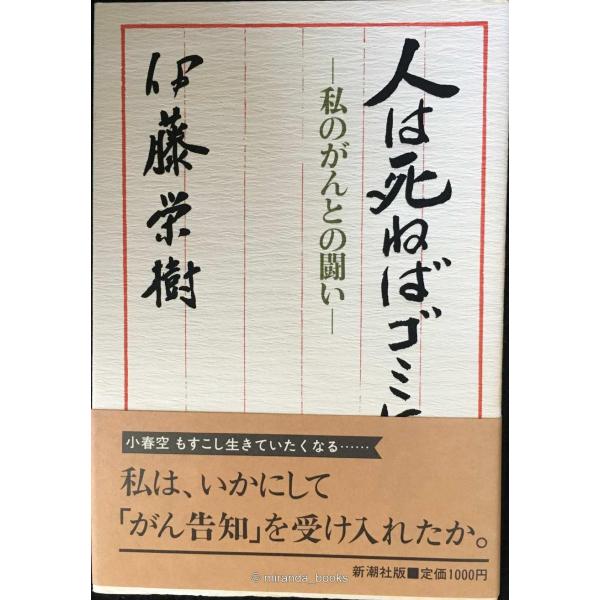 人は死ねばゴミに
―私のがんとの闘い―
伊藤栄樹
小春空 もすこし生きていたくなる……
私は、いかにして
「がん告知」を受け入れたか。
新潮社版■定価1000円
© miranda_books